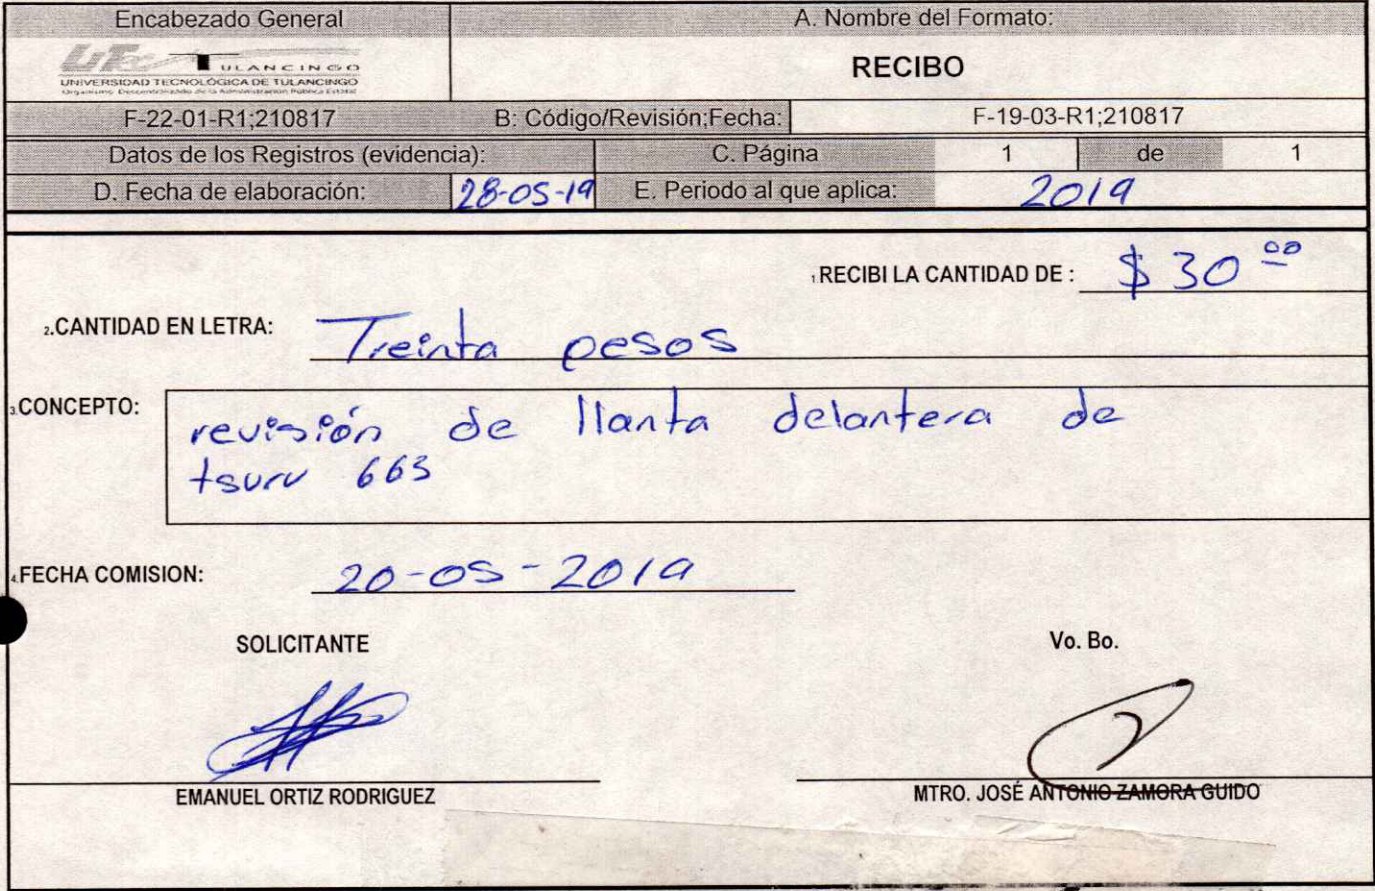 Encabezado General
A. Nombre del Formato:
UTec TULANCINGO
UNIVERSIDAD TECNOLÓGICA DE TULANCINGO
Organismo Descentralizado de la Administración Pública Estatal
RECIBO
F-22-01-R1;210817
B: Código/Revisión;Fecha:
F-19-03-R1;210817
Datos de los Registros (evidencia):
C. Página
1
de
1
D. Fecha de elaboración:
28-05-19
E. Periodo al que aplica:
2019
1.RECIBI LA CANTIDAD DE : $ 30 00
2.CANTIDAD EN LETRA: Treinta pesos
3.CONCEPTO: revisión de llanta delantera de
tsuru 663
4.FECHA COMISION: 20-05-2019
SOLICITANTE
Vo. Bo.
EMANUEL ORTIZ RODRIGUEZ
MTRO. JOSÉ ANTONIO ZAMORA GUIDO